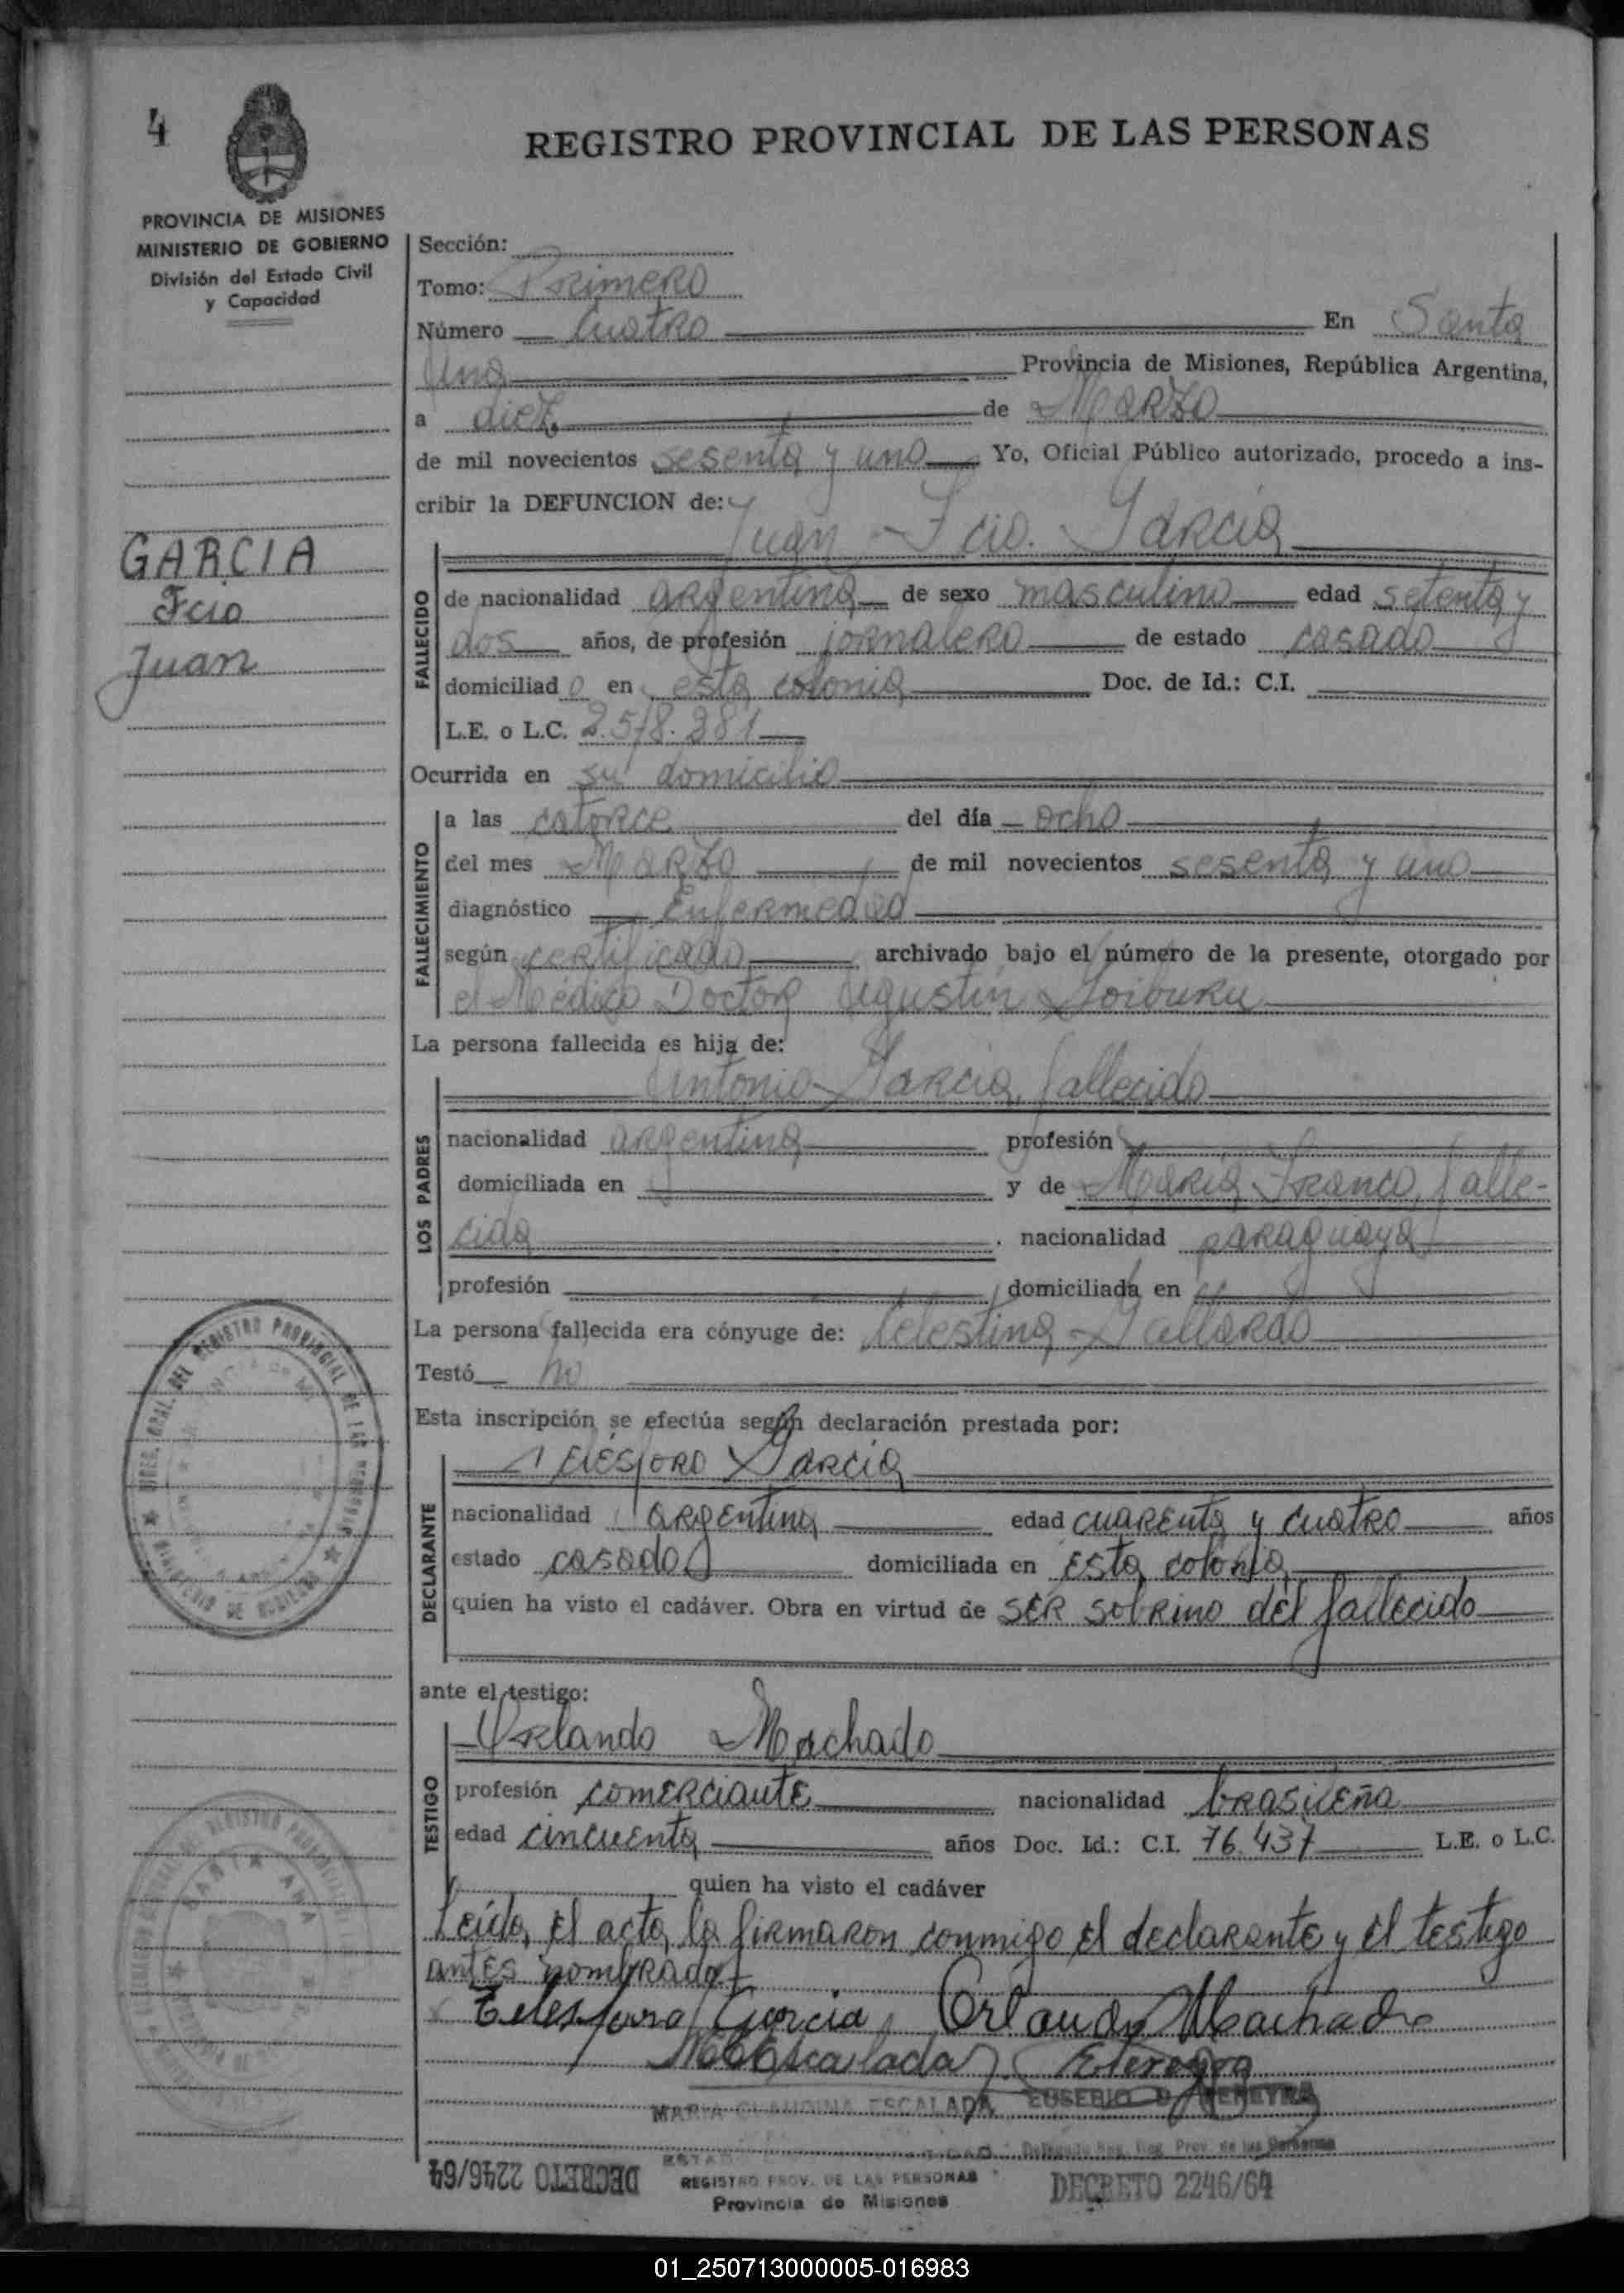 4
REGISTRO PROVINCIAL DE LAS PERSONAS
PROVINCIA DE MISIONES
MINISTERIO DE GOBIERNO
División del Estado Civil
y Capacidad
Sección:
Tomo: Primero
Número Cuatro En Santa
Ana Provincia de Misiones, República Argentina,
a diez de Marzo
de mil novecientos sesenta y uno Yo, Oficial Público autorizado, procedo a ins-
cribir la DEFUNCION de:
Juan Fcio. Garcia
GARCIA
Fcio
Juan
FALLECIDO
de nacionalidad argentina de sexo masculino edad setenta y
dos años, de profesión jornalero de estado casado
domiciliado en esta colonia Doc. de Id.: C.I.
L.E. o L.C. 2.578.281
Ocurrida en su domicilio
FALLECIMIENTO
a las catorce del día ocho
del mes Marzo de mil novecientos sesenta y uno
diagnóstico Enfermedad
según certificado archivado bajo el número de la presente, otorgado por
el Médico Doctor Agustin Goiburu
La persona fallecida es hija de:
Antonio Garcia, fallecido
LOS PADRES
nacionalidad argentina profesión
domiciliada en y de Maria Franco, falle-
cida nacionalidad paraguaya
profesión domiciliada en
La persona fallecida era cónyuge de: Celestina Gallardo
Testó no
Esta inscripción se efectúa según declaración prestada por:
Telésforo Garcia
DECLARANTE
nacionalidad argentina edad cuarenta y cuatro años
estado casado domiciliada en esta colonia
quien ha visto el cadáver. Obra en virtud de ser sobrino del fallecido
ante el testigo:
Orlando Machado
TESTIGO
profesión comerciante nacionalidad brasileña
edad cincuenta años Doc. Id.: C.I. 76.437 L.E. o L.C.
quien ha visto el cadáver
Leida, el acta, la firmaron conmigo el declarante y el testigo
antes nombrado
Telesforo Garcia Orlando Machado
MCEscalada EPereyra
MARIA CLAUDINA ESCALADA EUSEBIO D. PEREYRA
Reg. Prov. de las Personas
DECRETO 2246/64
REGISTRO PROV. DE LAS PERSONAS
Provincia de Misiones
DECRETO 2246/64
01_250713000005-016983